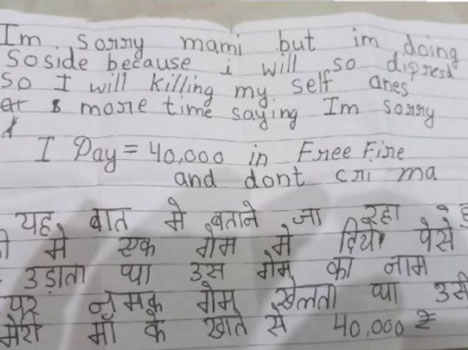 Im sorry mami but im doing
Soside because i will so dipresd
So I will killing my self
more time saying Im sorry
I Pay = 40,000 in Free Fire
and dont cri ma
यह बात मे बताने जा रहा
मे एक गेम मे दिया पैसे
उड़ाता था उस गेम का नाम
गेम खेलता था
मेरी माँ के खाते से 40,000 ₹